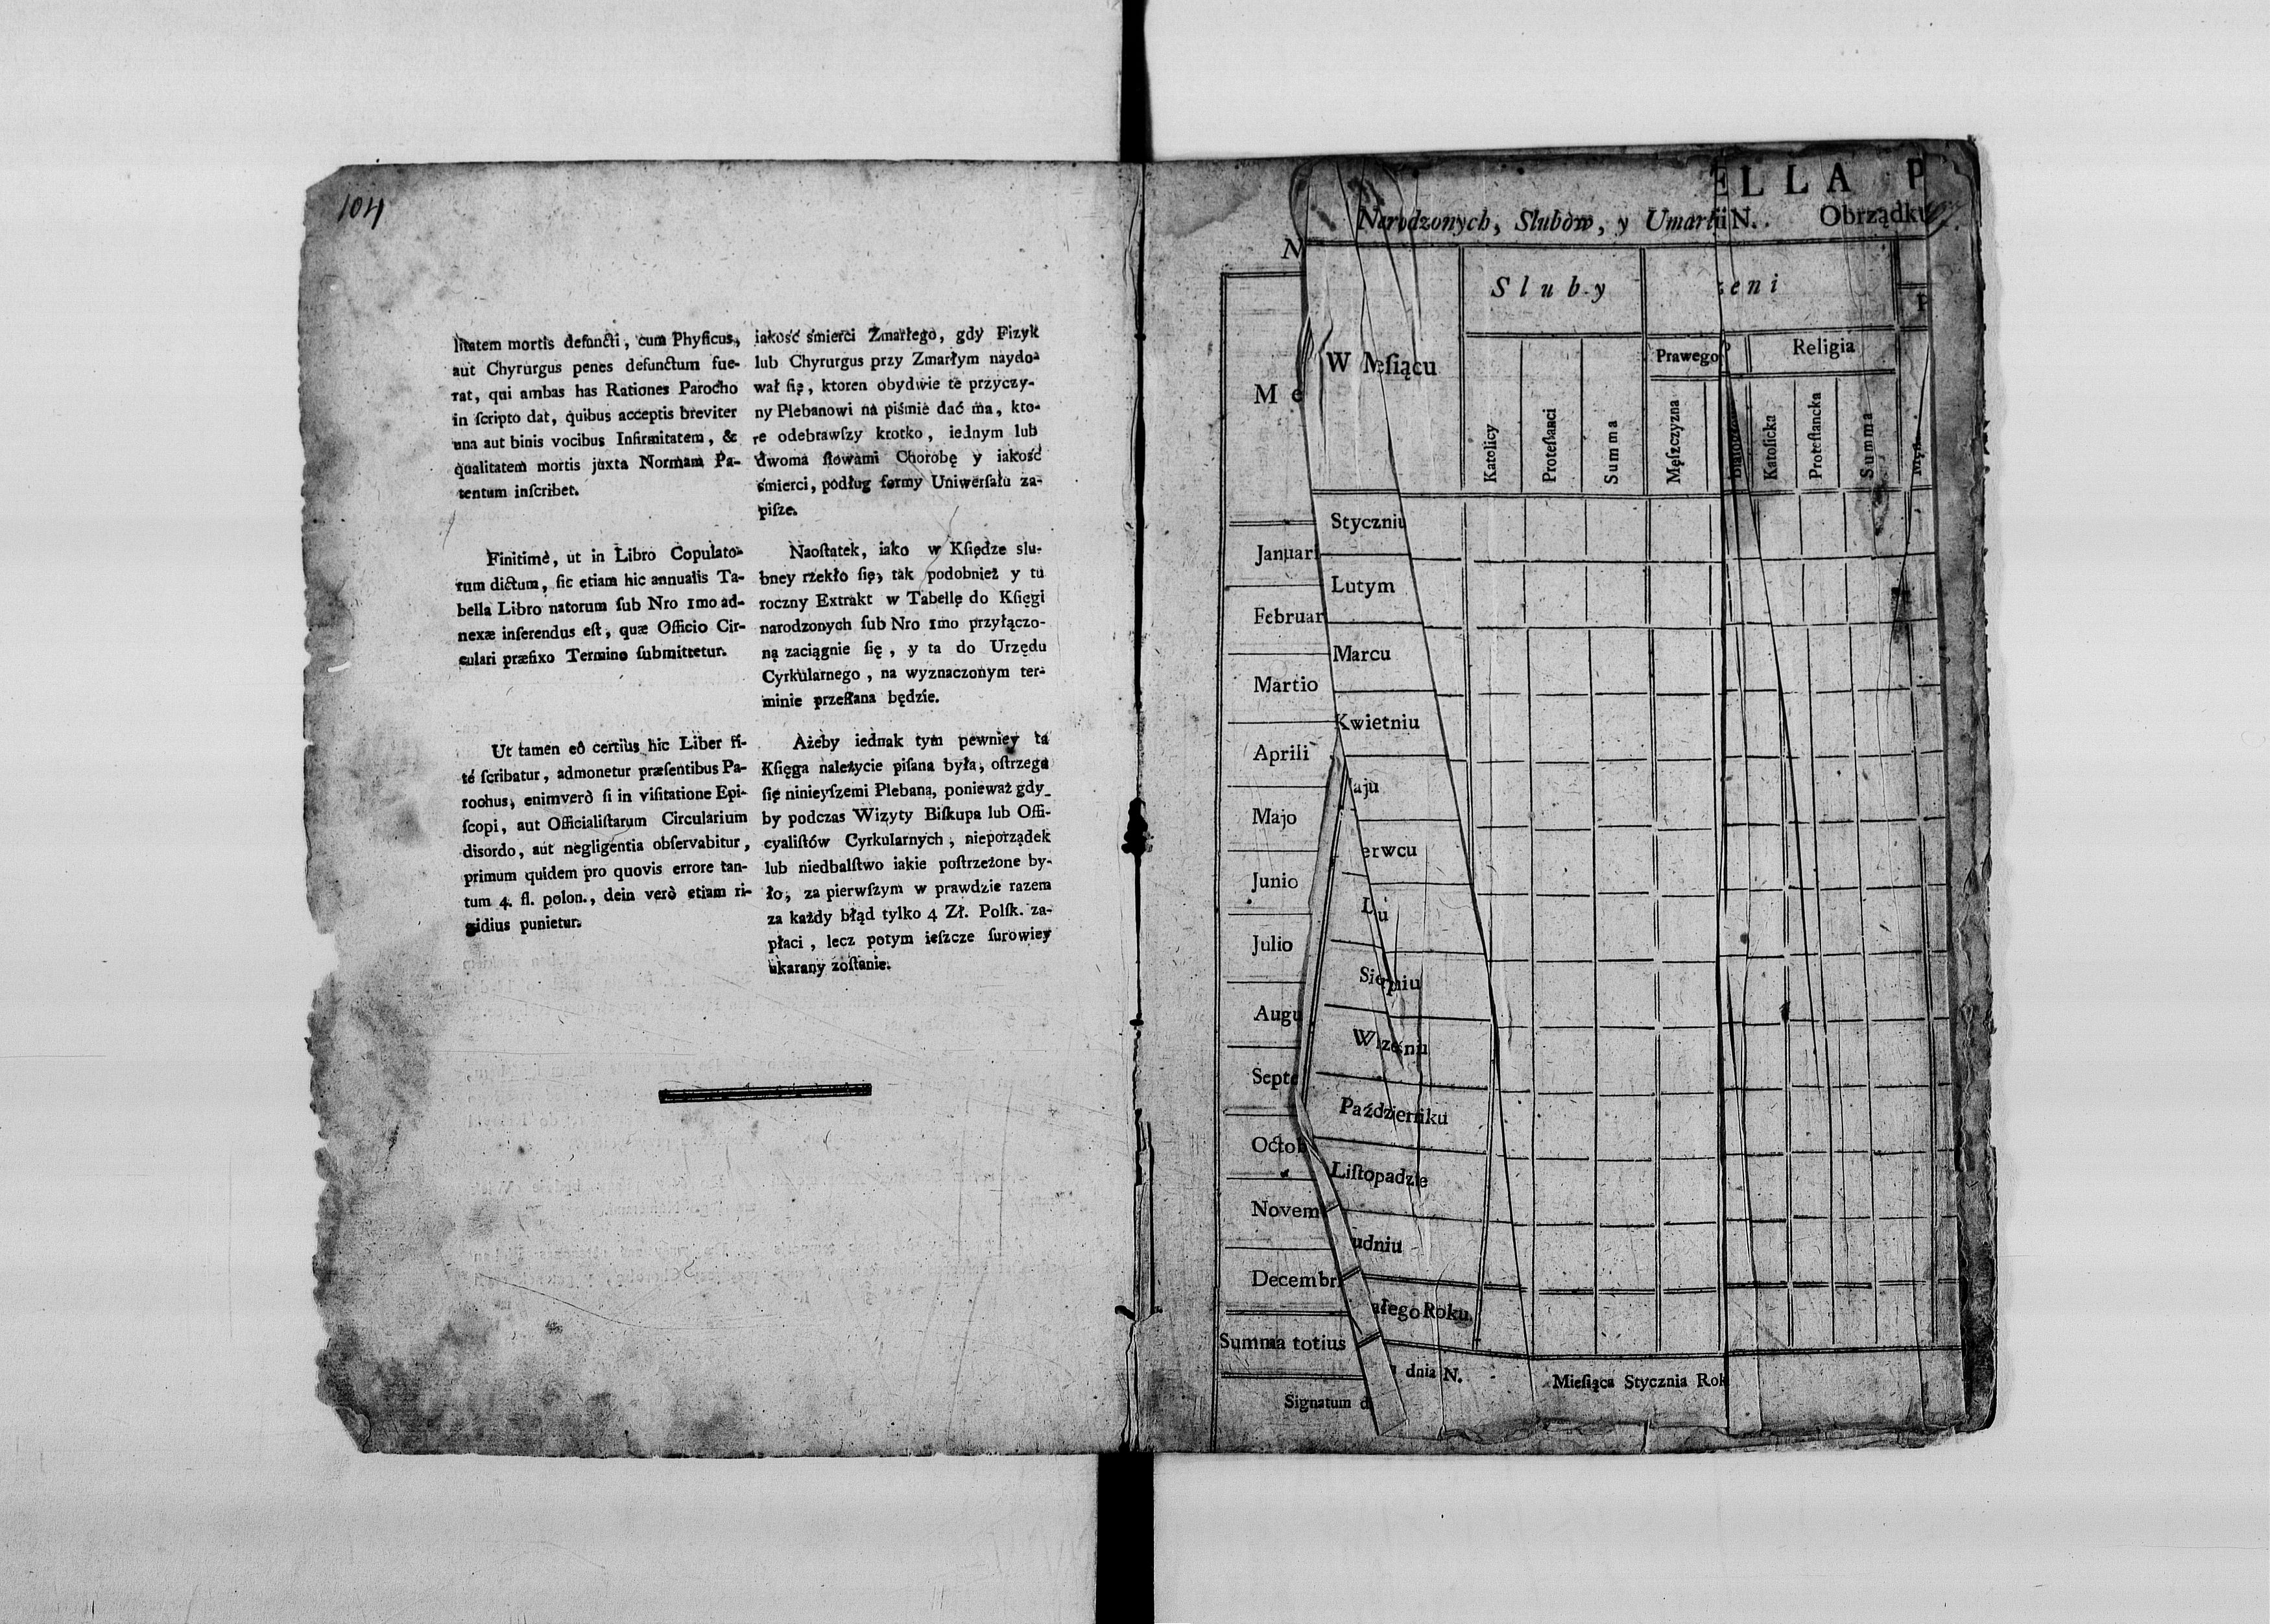 104
litatem mortis defuncti, cum Phyſicus,
aut Chyrurgus penes defunctum fue-
rat, qui ambas has Rationes Parocho
in ſcripto dat, quibus acceptis breviter
una aut binis vocibus Infirmitatem, &
qualitatem mortis juxta Normam Pa-
tentum inſcribet.
Finitimè, ut in Libro Copulato-
rum dictum, ſic etiam hic annualis Ta-
bella Libro natorum ſub Nro 1mo ad-
nexæ inſerendus eſt, quæ Officio Cir-
culari præfixo Termino ſubmittetur.
Ut tamen eò certiùs hic Liber ri-
té ſcribatur, admonetur præſentibus Pa-
rochus, enimverò ſi in viſitatione Epi-
ſcopi, aut Officialiſtarum Circularium
disordo, aut negligentia obſervabitur,
primum quidem pro quovis errore tan-
tum 4. fl. polon., dein verò etiam ri-
gidius punietur.
iakość śmierci Zmarłego, gdy Fizyk
lub Chyrurgus przy Zmarłym naydo-
wał ſię, ktoren obydwie te przyczy-
ny Plebanowi na piśmie dać ma, kto-
re odebrawſzy krotko, iednym lub
dwoma ſłowami Chorobę y iakość
śmierci, podług formy Uniwerſału za-
piſze.
Naoſtatek, iako w Kſiędze slu-
bney rzekło ſię, tak podobnież y tu
roczny Extrakt w Tabellę do Kſięgi
narodzonych ſub Nro 1mo przyłączo-
ną zaciągnie ſię, y ta do Urzędu
Cyrkularnego, na wyznaczonym ter-
minie przeſłana będzie.
Ażeby iednak tym pewniey ta
Kſięga należycie piſana była, oſtrzega
ſię ninieyſzemi Plebana, ponieważ gdy-
by podczas Wizyty Biſkupa lub Offi-
cyaliſtów Cyrkularnych, nieporządek
lub niedbalſtwo iakie poſtrzeżone by-
ło, za pierwſzym w prawdzie razem
za każdy błąd tylko 4 Zł. Polſk. za-
płaci, lecz potym ieſzcze ſurowiey
ukarany zoſtanie.
ELLA P
Narodzonych, Slubów, y Umarł N. Obrządku
N
Sluby
zeni
P
Me
W Mſiącu
Prawego
Religia
Katolicy
Proteſtanci
Summa
Męſzczyzna
Katolicka
Proteſtancka
Summa
Styczniu
Januari
Lutym
Februar
Marcu
Martio
Kwietniu
Aprili
aju
Majo
erwcu
Junio
Julio
Sierpniu
Augu
Wrześniu
Septe
Październiku
Octob
Liſtopadzie
Novem
udniu
Decembr
ałego Roku
Summa totius
dnia N. Mieſiąca Stycznia Rok
Signatum d